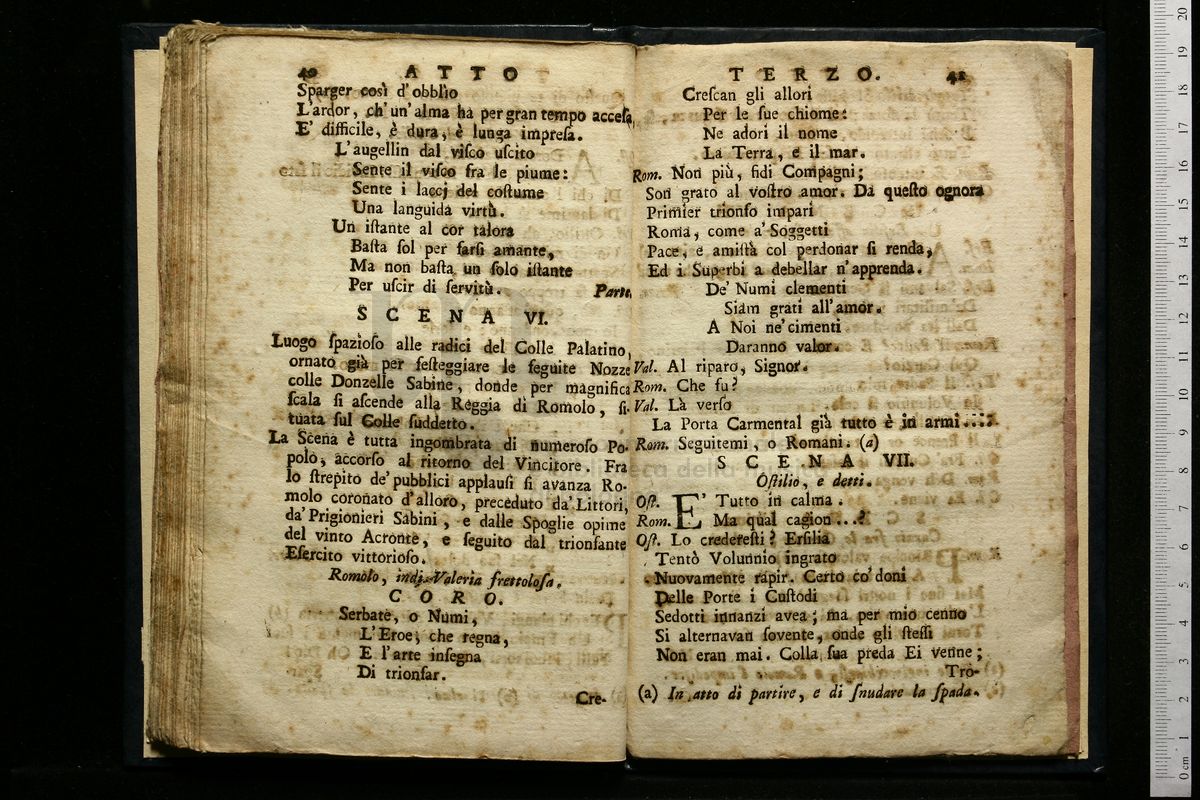 40 ATTO
Sparger così d'obblìo
L'ardor, ch'un'alma ha per gran tempo accesa,
E' difficile, è dura, è lunga impresa.
L'augellin dal visco uscito
Sente il visco fra le piume:
Sente i laccj del costume
Una languida virtù.
Un istante al cor talora
Basta sol per farsi amante,
Ma non basta un solo istante
Per uscir di servitù. Parte.
SCENA VI.
Luogo spazioso alle radici del Colle Palatino,
ornato già per festeggiare le seguite Nozze
colle Donzelle Sabine, donde per magnifica
scala si ascende alla Reggia di Romolo, si-
tuata sul Colle suddetto.
La Scena è tutta ingombrata di numeroso Po-
polo, accorso al ritorno del Vincitore. Fra
lo strepito de'pubblici applausi si avanza Ro-
molo coronato d'alloro, preceduto da'Littori,
da'Prigionieri Sabini, e dalle Spoglie opime
del vinto Acronte, e seguito dal trionfante
Esercito vittorioso.
Romolo, indi Valeria frettolosa.
CORO.
Serbate, o Numi,
L'Eroe, che regna,
E l'arte insegna
Di trionfar.
Cre-
TERZO. 41
Crescan gli allori
Per le sue chiome:
Ne adori il nome
La Terra, e il mar.
Rom. Non più, fidi Compagni;
Son grato al vostro amor. Da questo ognora
Primier trionfo impari
Roma, come a'Soggetti
Pace, e amistà col perdonar si renda,
Ed i Superbi a debellar n'apprenda.
De' Numi clementi
Siam grati all'amor.
A Noi ne'cimenti
Daranno valor.
Val. Al riparo, Signor.
Rom. Che fu?
Val. Là verso
La Porta Carmental già tutto è in armi....
Rom. Seguitemi, o Romani. (a)
SCENA VII.
Ostilio, e detti.
Ost. E' Tutto in calma.
Rom. Ma qual cagion...?
Ost. Lo crederesti? Ersilia
Tentò Volunnio ingrato
Nuovamente rapir. Certo co'doni
Delle Porte i Custodi
Sedotti innanzi avea; ma per mio cenno
Si alternavan sovente, onde gli stessi
Non eran mai. Colla sua preda Ei venne;
Tro-
(a) In atto di partire, e di snudare la spada.